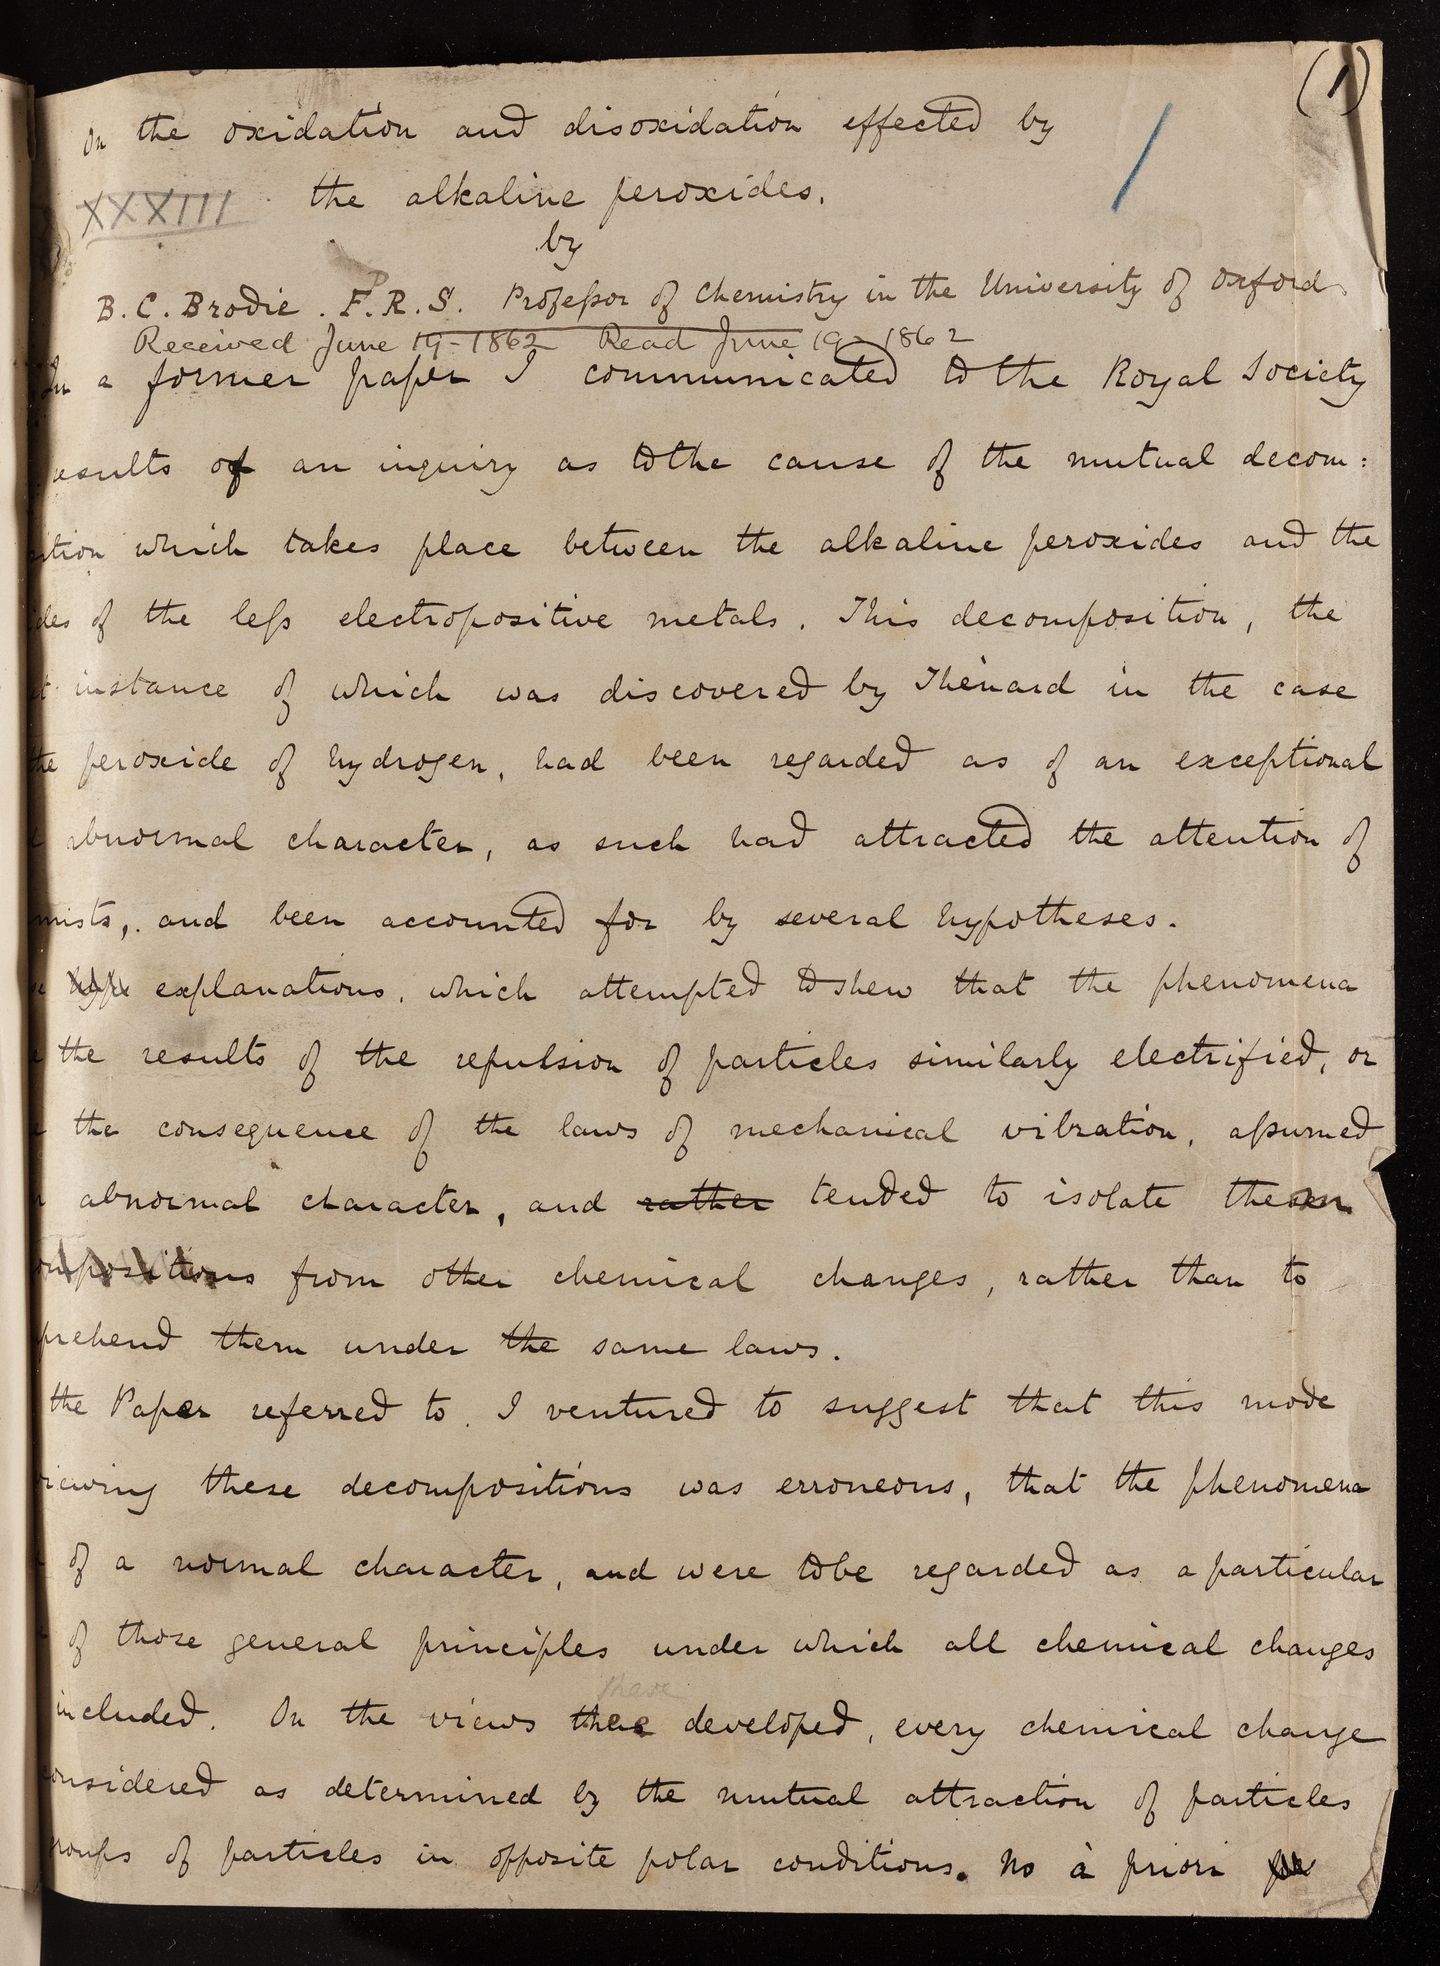 (1)
On the oxidation and disoxidation effected by
XXXIII the alkaline peroxides.
by
B. C. Brodie. F.R.S. Professor of Chemistry in the University of Oxford
Received June 19 - 1862 Read June 19 - 1862
In a former paper I communicated to the Royal Society
esults of an inquiry as to the cause of the mutual decom:
sition which takes place between the alkaline peroxides and the
ides of the less electropositive metals. This decomposition, the
st instance of which was discovered by Thénard in the case
the peroxide of hydrogen, had been regarded as of an exceptional
abnormal character, as such had attracted the attention of
mists, and been accounted for by several hypotheses.
explanations, which attempted to shew that the phenomena
the results of the repulsion of particles similarly electrified, or
the consequence of the laws of mechanical vibration, assumed
abnormal character, and rather tended to isolate them
ompositions from other chemical changes, rather than to
prehend them under the same laws.
the Paper referred to. I ventured to suggest that this mode
viewing these decompositions was erroneous, that the phenomena
of a normal character, and were to be regarded as a particular
of those general principles under which all chemical changes
these
included. On the views there developed, every chemical change
considered as determined by the mutual attraction of particles
groups of particles in opposite polar conditions. No à priori